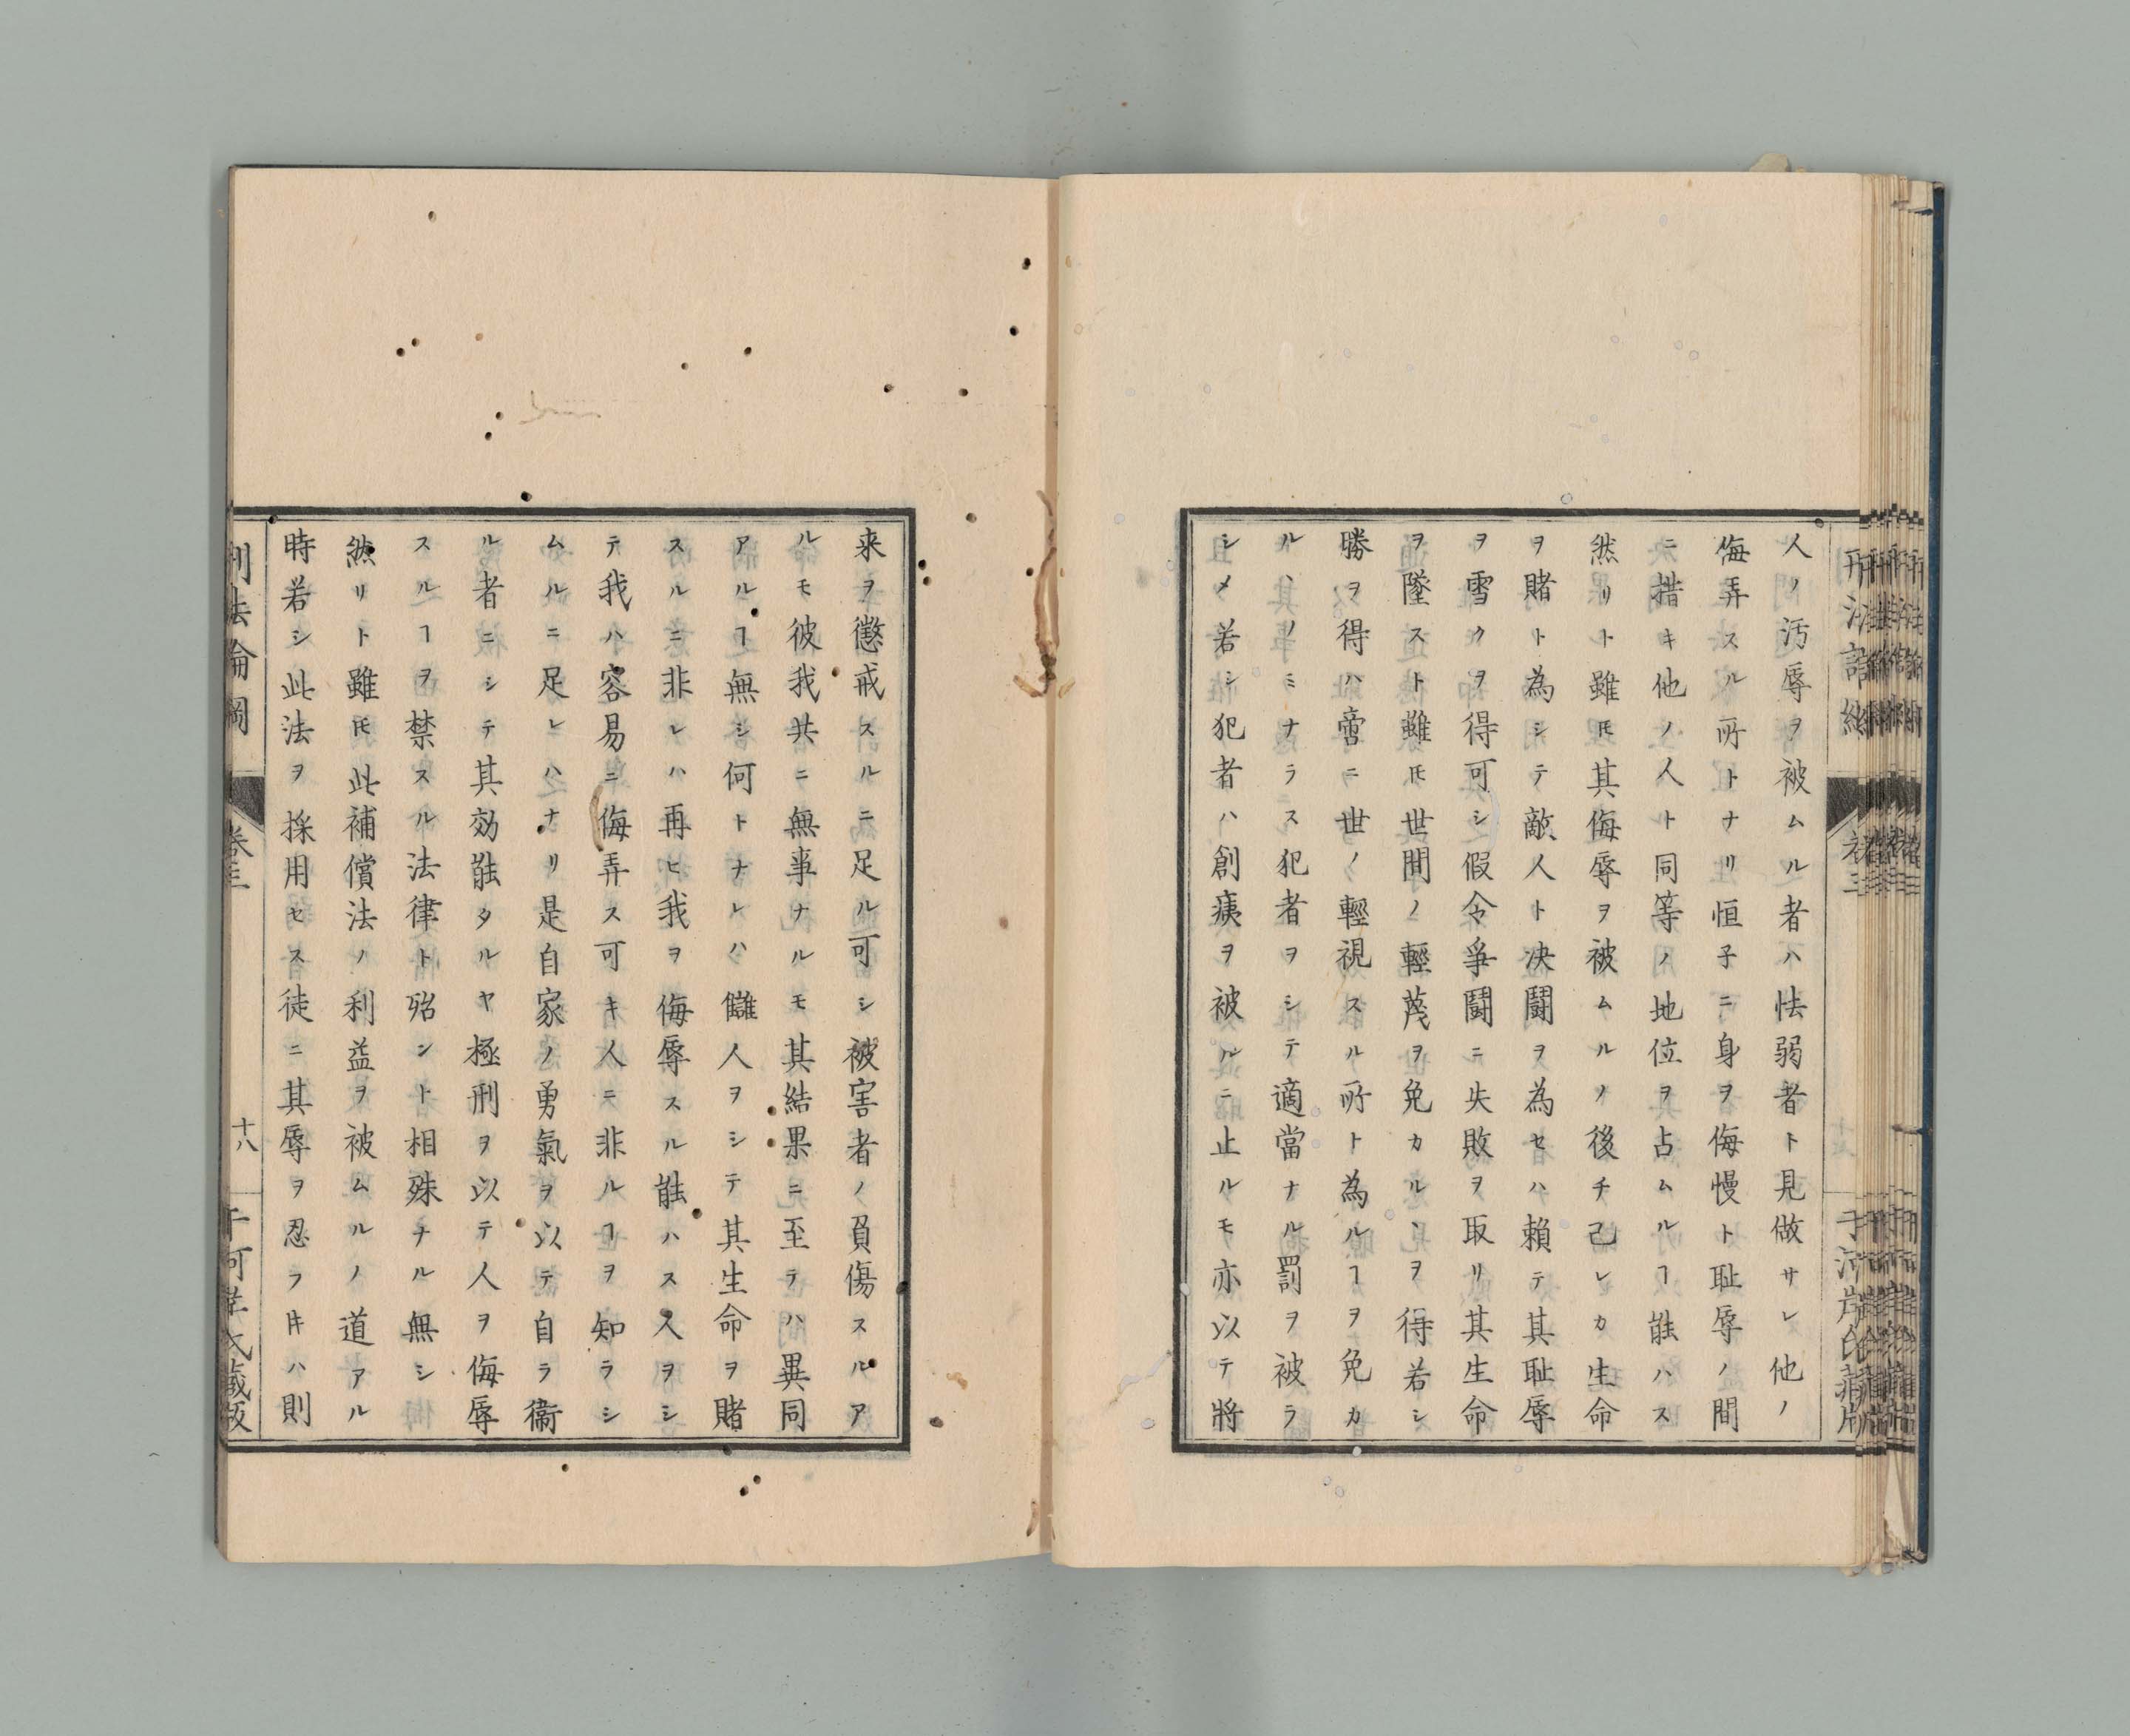 人ノ汚辱ヲ被ムル者ハ怯弱者ト見做サレ他ノ
侮弄スル所トナリ恒子ニ身ヲ侮慢ト耻辱ノ間
ニ措キ他ノ人ト同等ノ地位ヲ占ムルヿ能ハス
然リト雖𪜈其侮辱ヲ被ムルノ後チ己レカ生命
ヲ賭ト為シテ敵人ト决闘ヲ為セハ頼テ其耻辱
ヲ雪クヲ得可シ假令爭闘ニ失敗ヲ取リ其生命
ヲ墜スト雖𪜈世間ノ輕蔑ヲ免カルヽヲ得若シ
勝ヲ得ハ啻ニ世ノ輕視スル所ト為ルヿヲ免カ
ルヽノミナラス犯者ヲシテ適當ナル罰ヲ被ラ
シメ若シ犯者ハ創痍ヲ被ルニ止ルモ亦以テ將
来ヲ懲戒スルニ足ル可シ被害者ノ負傷スルア
ルモ彼我共ニ無事ナルモ其結果ニ至テハ異同
アルヿ無シ何トナレハ讎人ヲシテ其生命ヲ賭
スルニ非レハ再ヒ我ヲ侮辱スル能ハス人ヲシ
テ我ハ容易ニ侮弄ス可キ人ニ非ルヿヲ知ラシ
ムルニ足レハナリ是自家ノ勇氣ヲ以テ自ラ衞
ル者ニシテ其効能タルヤ極刑ヲ以テ人ヲ侮辱
スルヿヲ禁スル法律ト殆ント相殊ナル無シ
然リト雖𪜈此補償法ノ利益ヲ被ムルノ道アル
時若シ此法ヲ採用セス徒ニ其辱ヲ忍フ𪜀ハ則
刑法論綱
卷三
十八